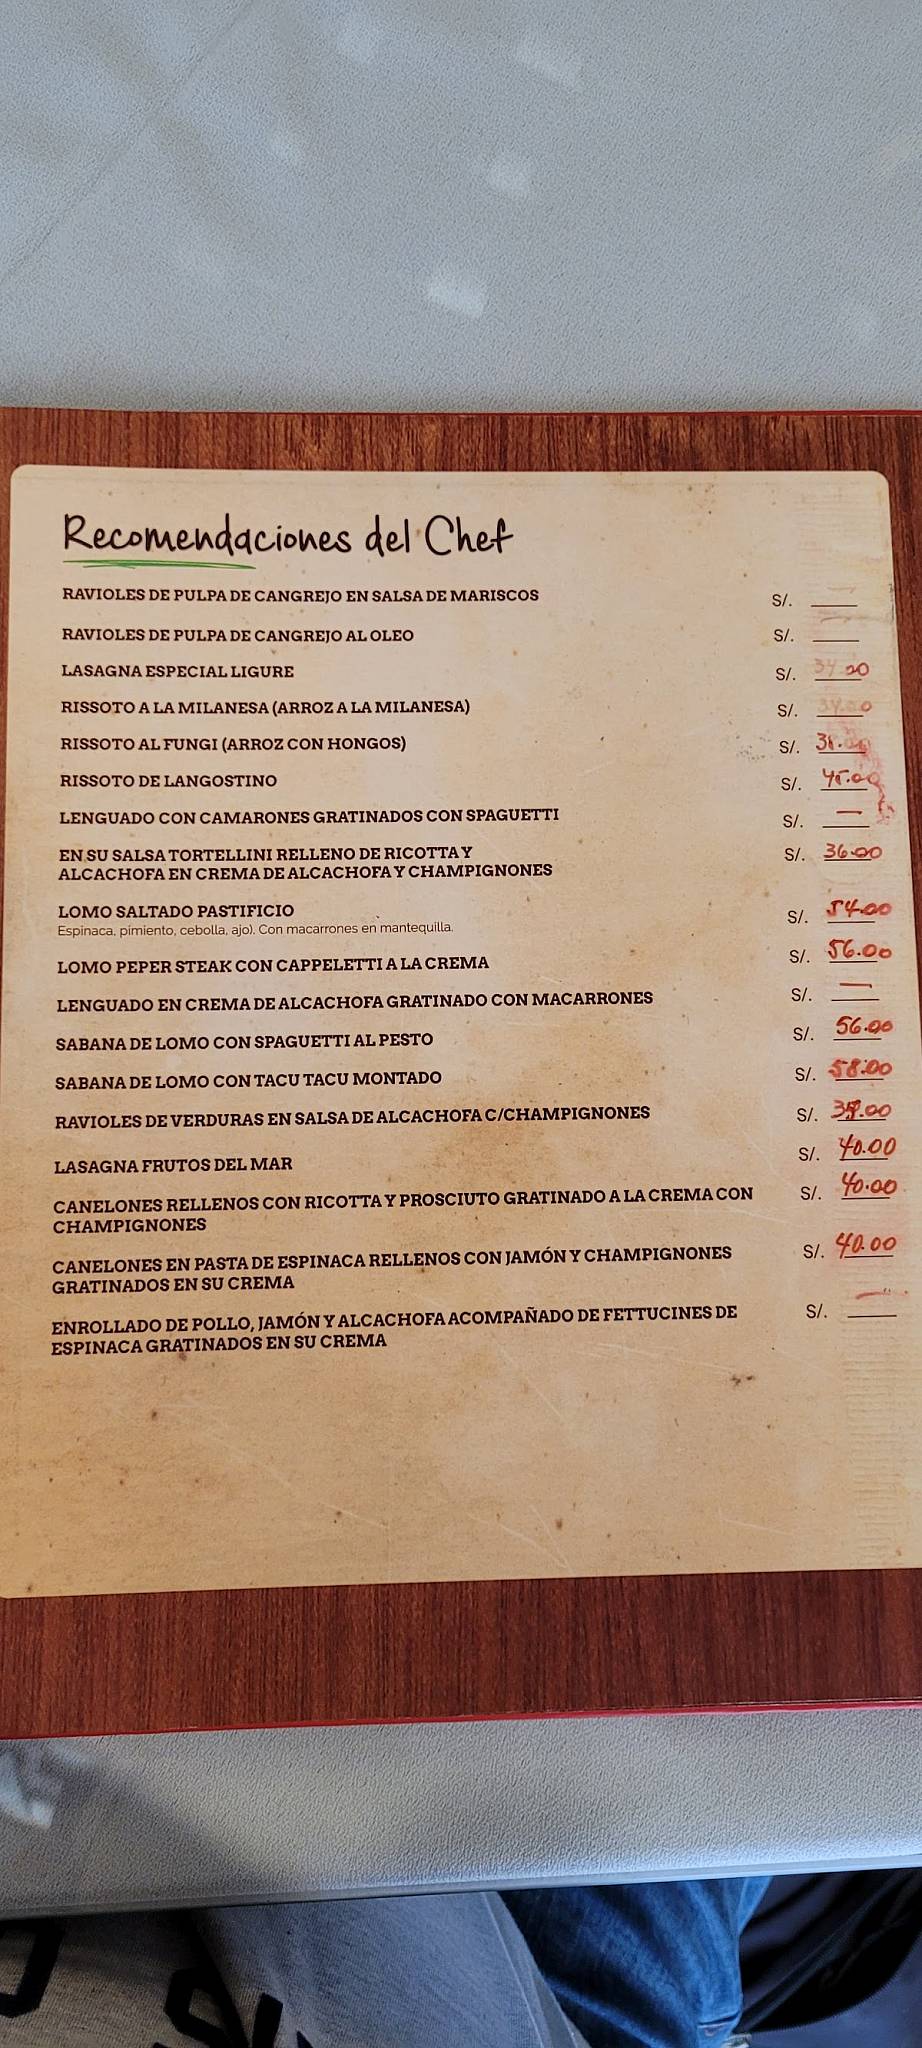 Recomendaciones del Chef
RAVIOLES DE PULPA DE CANGREJO EN SALSA DE MARISCOS S/. —
RAVIOLES DE PULPA DE CANGREJO AL OLEO S/. —
LASAGNA ESPECIAL LIGURE S/. 34.00
RISSOTO A LA MILANESA (ARROZ A LA MILANESA) S/. 34.00
RISSOTO AL FUNGI (ARROZ CON HONGOS) S/.
RISSOTO DE LANGOSTINO S/. 45.00
LENGUADO CON CAMARONES GRATINADOS CON SPAGUETTI S/. —
EN SU SALSA TORTELLINI RELLENO DE RICOTTA Y S/. 36.00
ALCACHOFA EN CREMA DE ALCACHOFA Y CHAMPIGNONES
LOMO SALTADO PASTIFICIO S/. 54.00
Espinaca, pimiento, cebolla, ajo). Con macarrones en mantequilla.
LOMO PEPER STEAK CON CAPPELETTI A LA CREMA S/. 56.00
LENGUADO EN CREMA DE ALCACHOFA GRATINADO CON MACARRONES S/. —
SABANA DE LOMO CON SPAGUETTI AL PESTO S/. 56.00
SABANA DE LOMO CON TACU TACU MONTADO S/. 58.00
RAVIOLES DE VERDURAS EN SALSA DE ALCACHOFA C/CHAMPIGNONES S/.
LASAGNA FRUTOS DEL MAR S/. 40.00
CANELONES RELLENOS CON RICOTTA Y PROSCIUTO GRATINADO A LA CREMA CON S/. 40.00
CHAMPIGNONES
CANELONES EN PASTA DE ESPINACA RELLENOS CON JAMÓN Y CHAMPIGNONES S/. 40.00
GRATINADOS EN SU CREMA
ENROLLADO DE POLLO, JAMÓN Y ALCACHOFA ACOMPAÑADO DE FETTUCINES DE S/. —
ESPINACA GRATINADOS EN SU CREMA